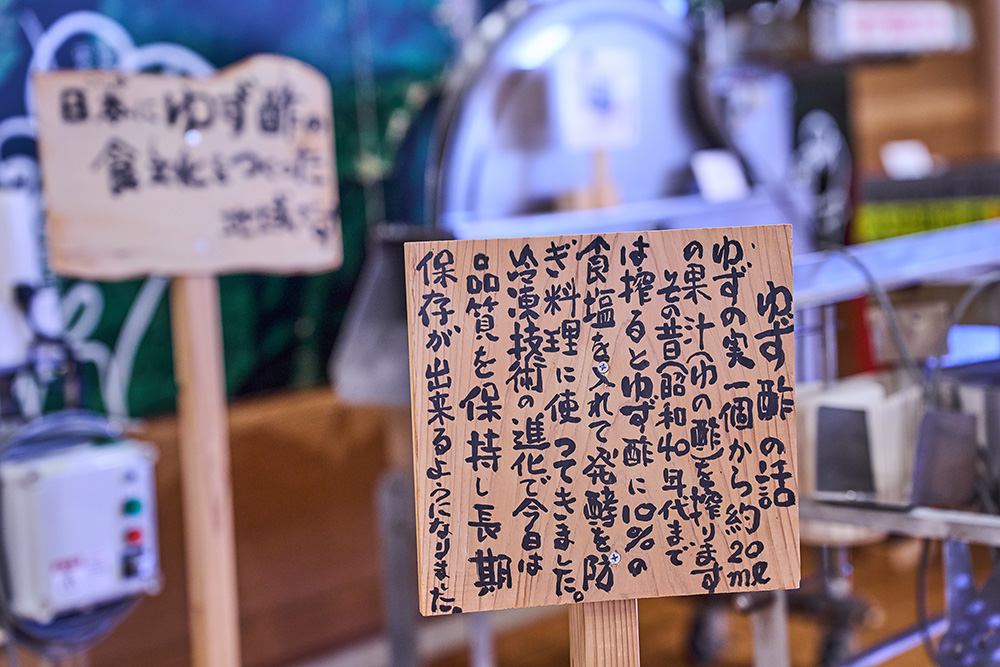 ゆず酢の話
ゆずの実一個から約20ml
の果汁(ゆの酢)を搾ります
その昔(昭和40年代まで
は搾るとゆず酢に10%の
食塩を入れて発酵を防
ぎ料理に使ってきました。
冷凍技術の進化で今日は
品質を保持し長期
保存が出来るようになりました。
日本にゆず酢の
食文化をつくった
地域です